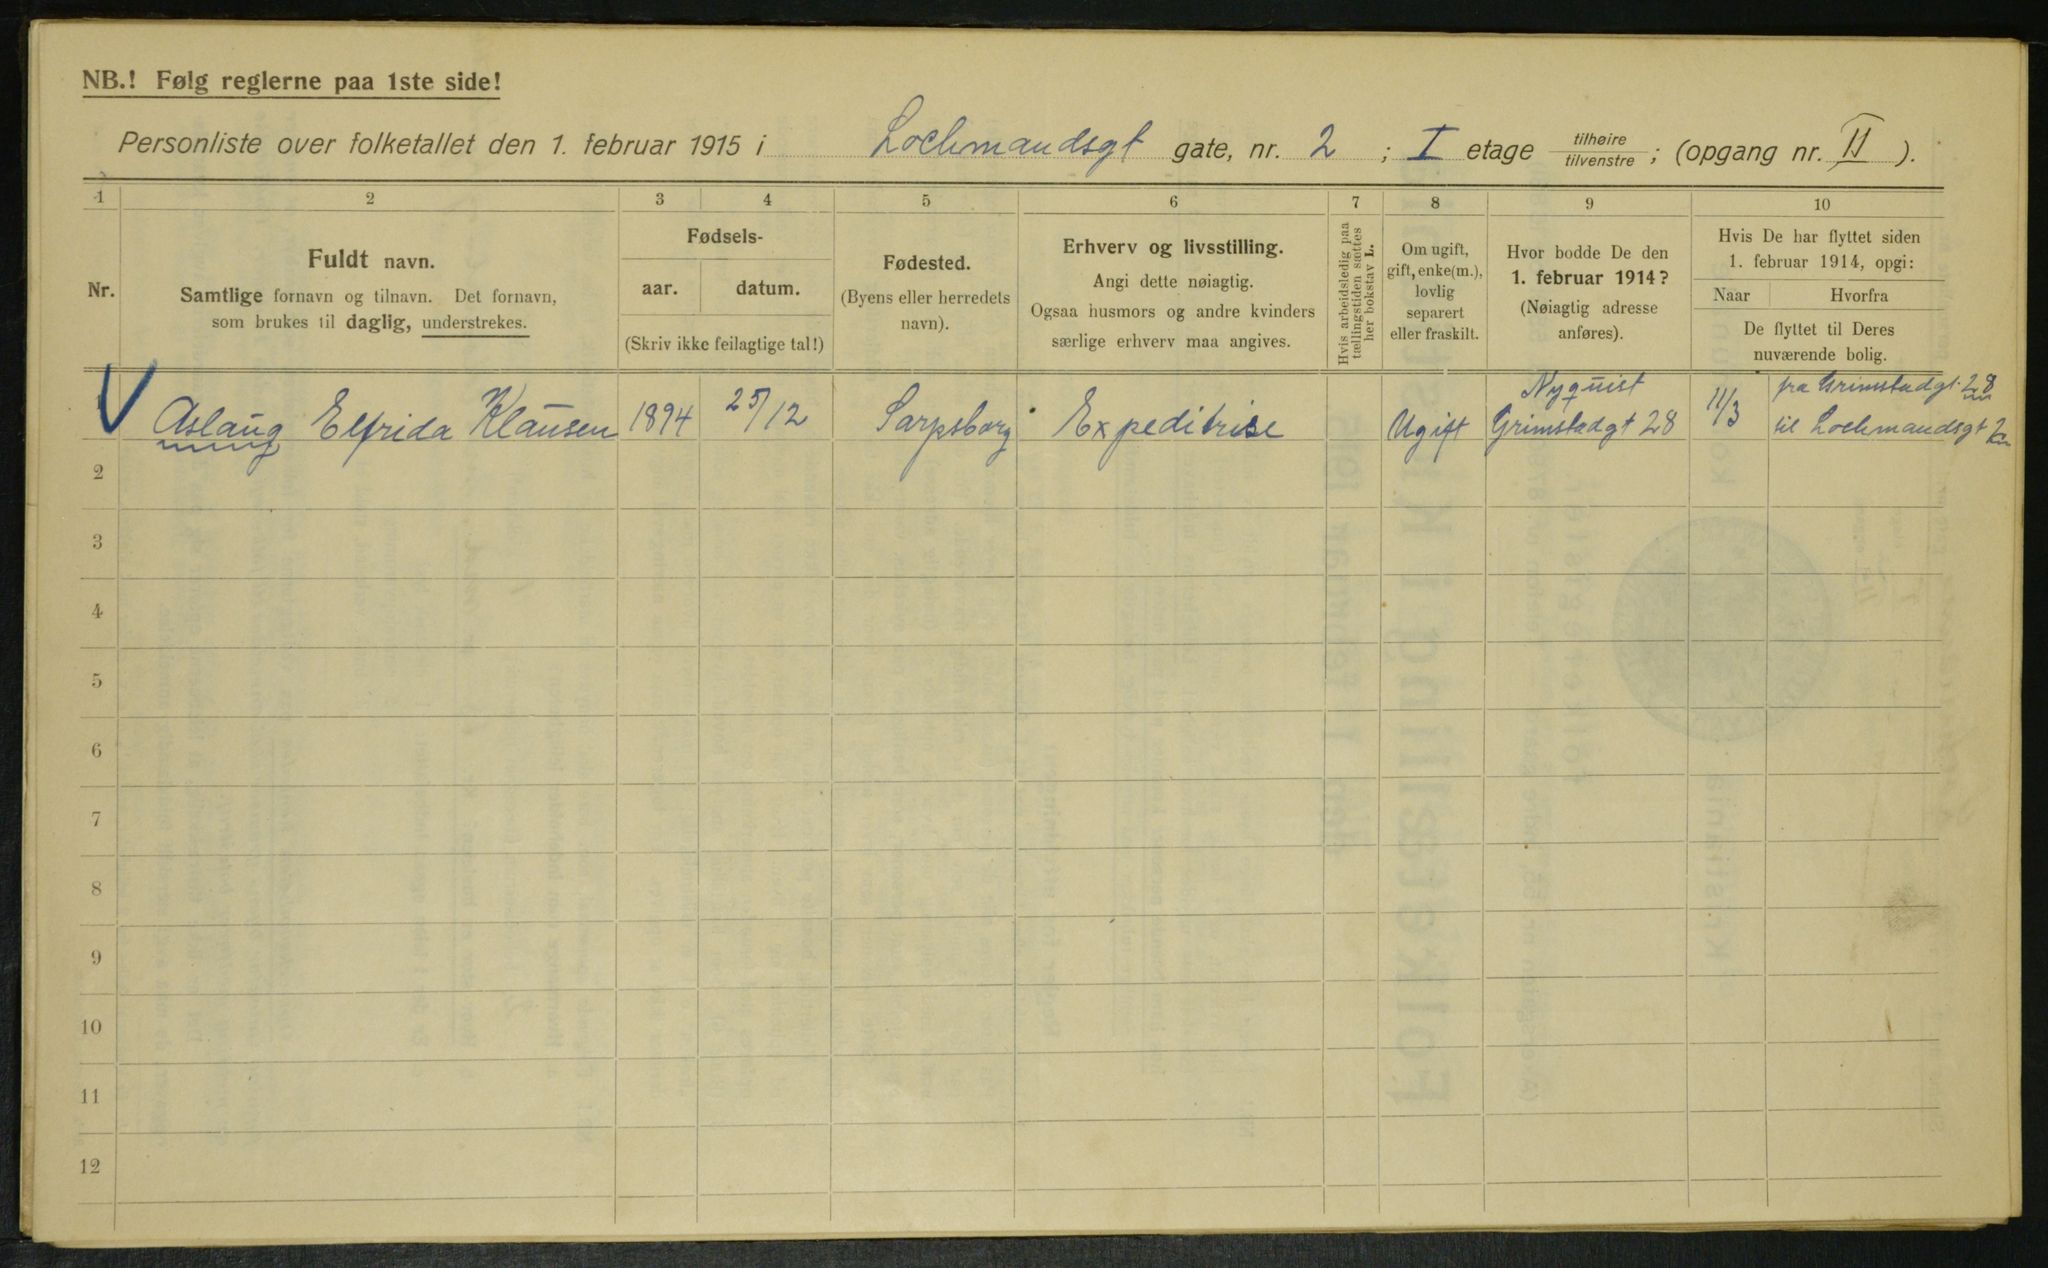 NB.! Følg reglerne paa 1ste side!
Personliste over folketallet den 1. februar 1915 i Lochmandsgt gate, nr. 2 ; I etage tilhøire / tilvenstre ; (opgang nr. II ).
1 2 3 4 5 6 7 8 9 10
Nr.
Fuldt navn.
Samtlige fornavn og tilnavn. Det fornavn,
som brukes til daglig, understrekes.
Fødsels-
aar. datum.
(Skriv ikke feilagtige tal!)
Fødested.
(Byens eller herredets
navn).
Erhverv og livsstilling.
Angi dette nøiagtig.
Ogsaa husmors og andre kvinders
særlige erhverv maa angives.
Hvis arbeidsledig paa
tællingstiden sættes
her bokstav L.
Om ugift,
gift, enke(m.),
lovlig
separert
eller fraskilt.
Hvor bodde De den
1. februar 1914?
(Nøiagtig adresse
anføres).
Hvis De har flyttet siden
1. februar 1914, opgi:
Naar Hvorfra
De flyttet til Deres
nuværende bolig.
Aslaug Elfrida Klausen 1894 25/12 Sarpsborg Expeditrise Ugift Nyquist
Grimstadgt 28 11/3 fra Grimstadgt. 28
til Lochmandsgt 2
2
3
4
5
6
7
8
9
10
11
12